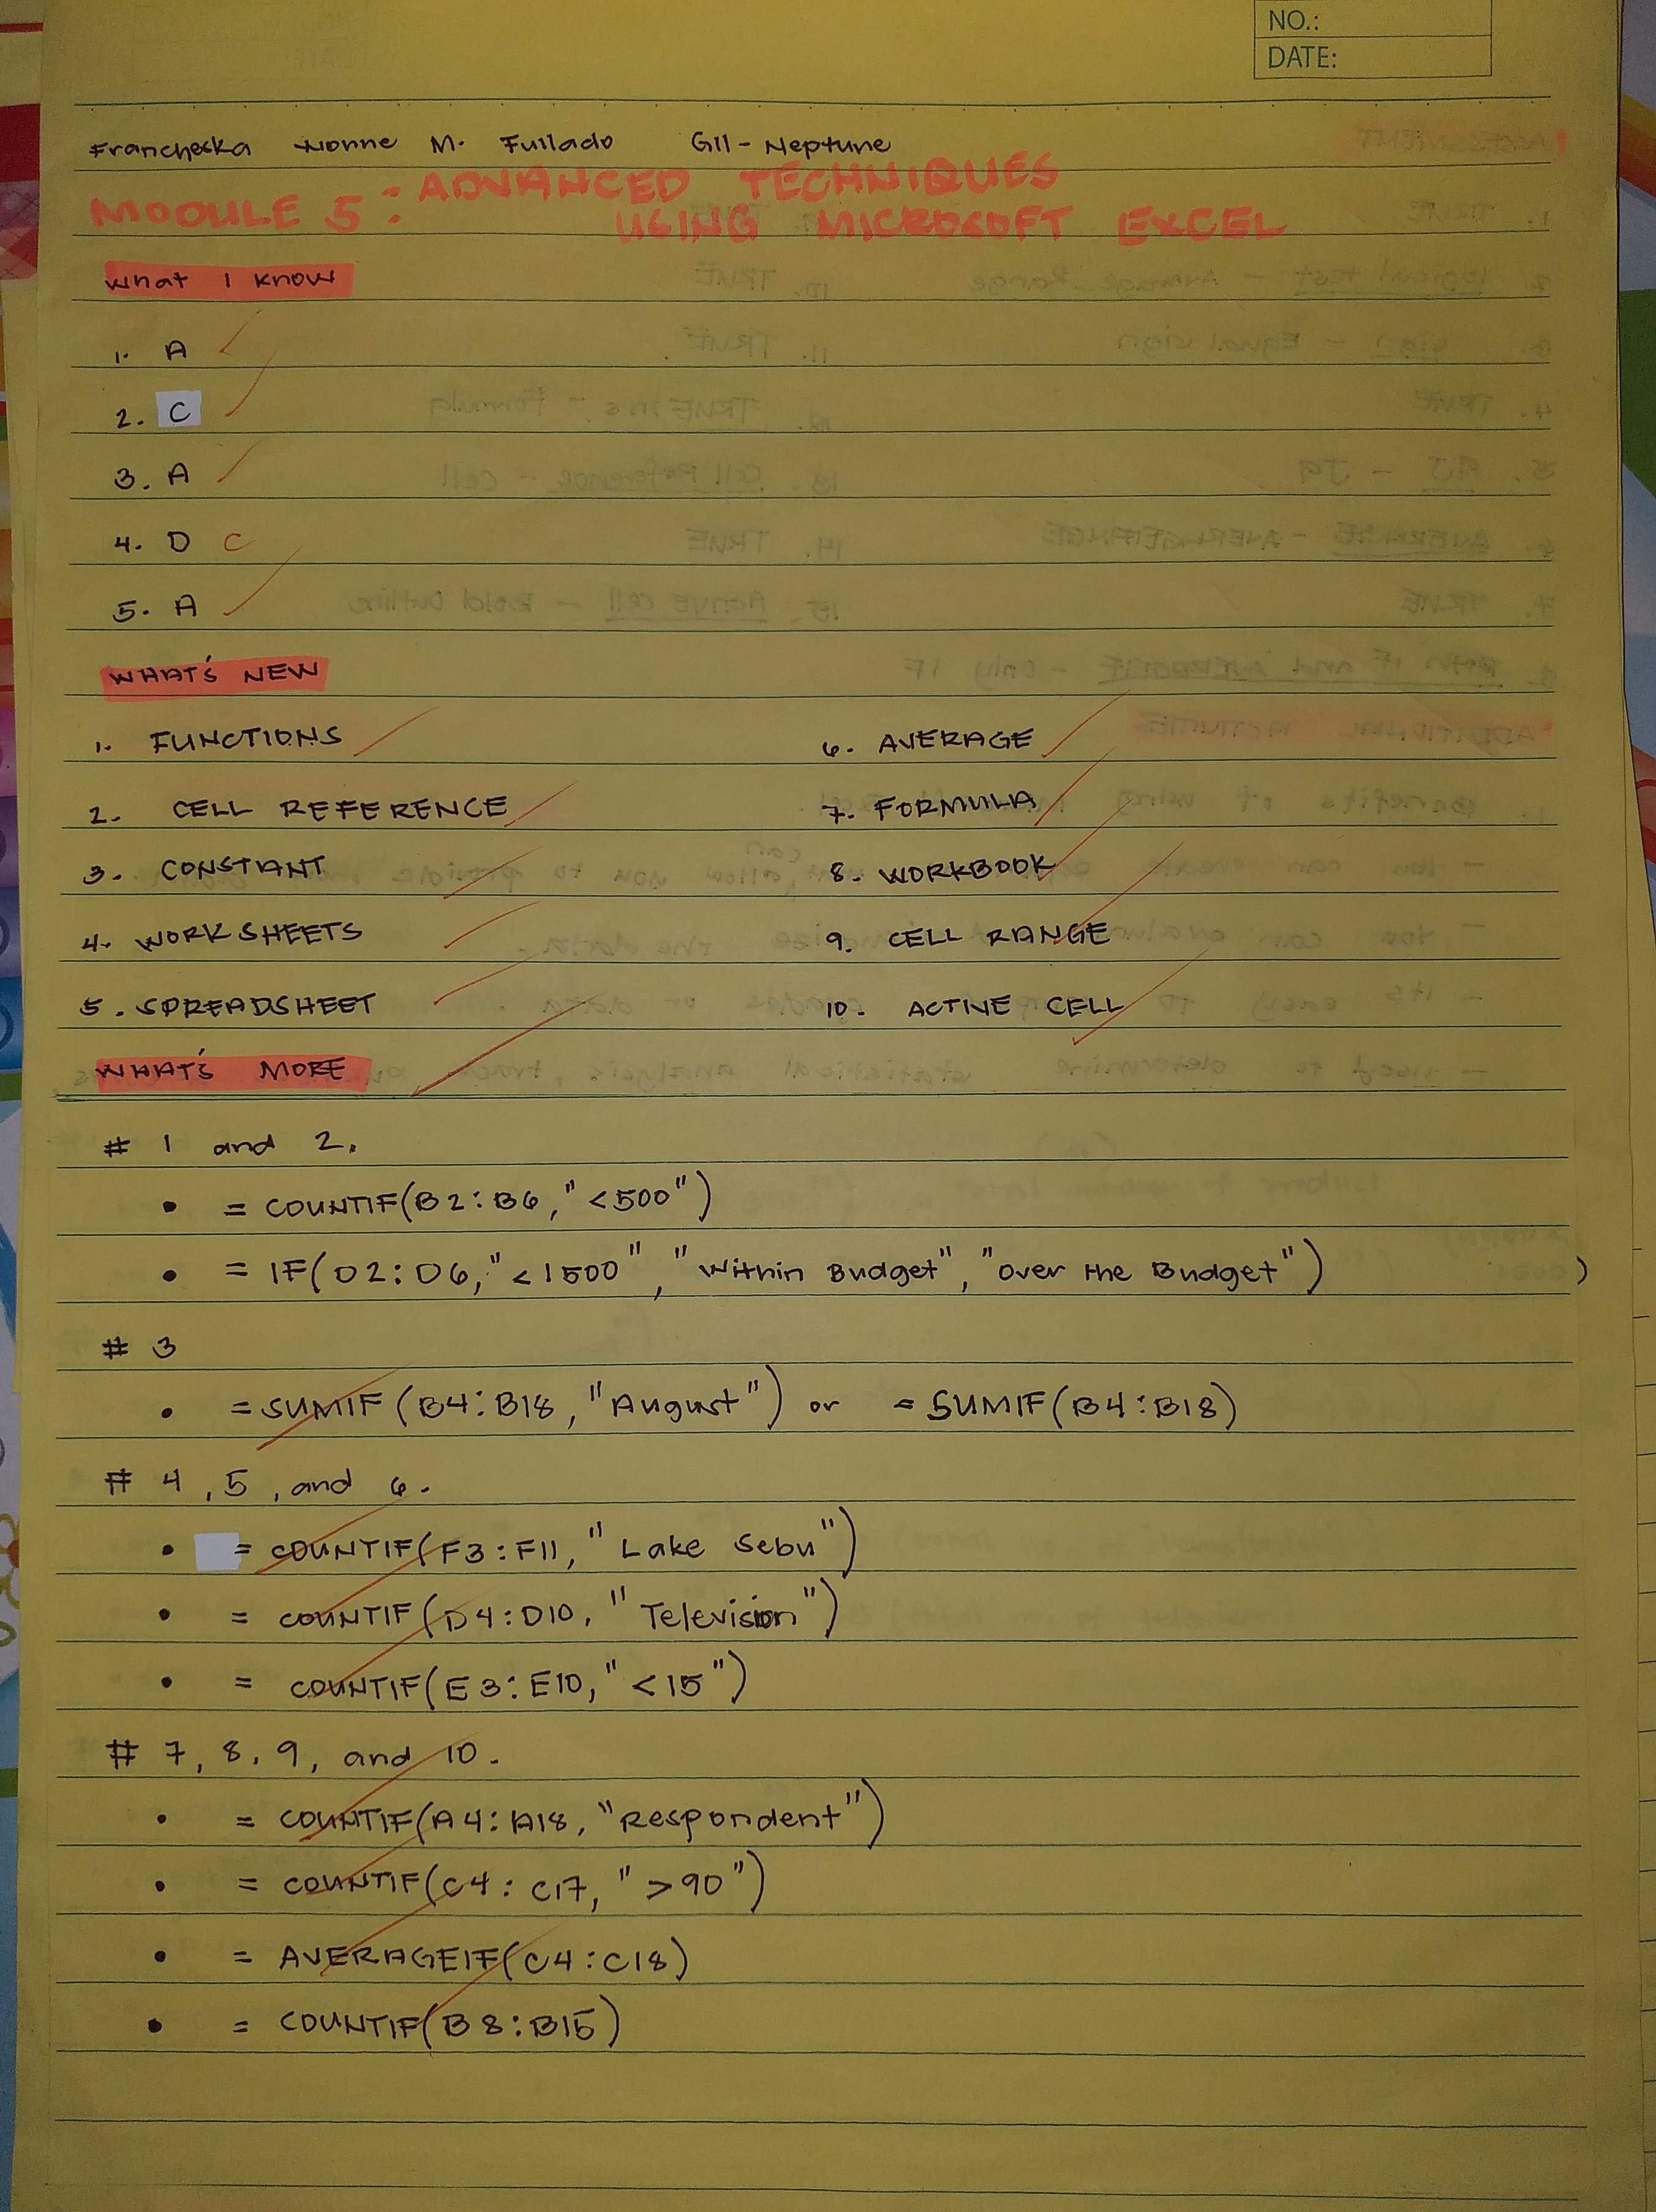 NO.:
DATE:
Francheska Ivonne M. Fullado G11 - Neptune
MODULE 5: ADVANCED TECHNIQUES
USING MICROSOFT EXCEL
What I Know
1. A
2. C
3. A
4. D C
5. A
WHAT'S NEW
1. FUNCTIONS 6. AVERAGE
2. CELL REFERENCE 7. FORMULA
3. CONSTANT 8. WORKBOOK
4. WORKSHEETS 9. CELL RANGE
5. SPREADSHEET 10. ACTIVE CELL
WHAT'S MORE
# 1 and 2.
• = COUNTIF(B2:B6,"<500")
• = IF(D2:D6,"<1500","Within Budget","Over the Budget") )
# 3
• =SUMIF (B4:B18,"August") or =SUMIF(B4:B18)
# 4, 5, and 6.
• = COUNTIF(F3:F11,"Lake Sebu")
• = COUNTIF(D4:D10,"Television")
• = COUNTIF(E3:E10,"<15")
# 7, 8, 9, and 10.
• = COUNTIF(A4:A18,"Respondent")
• = COUNTIF(C4:C17,">90")
• = AVERAGEIF(C4:C18)
• = COUNTIF(B8:B15)